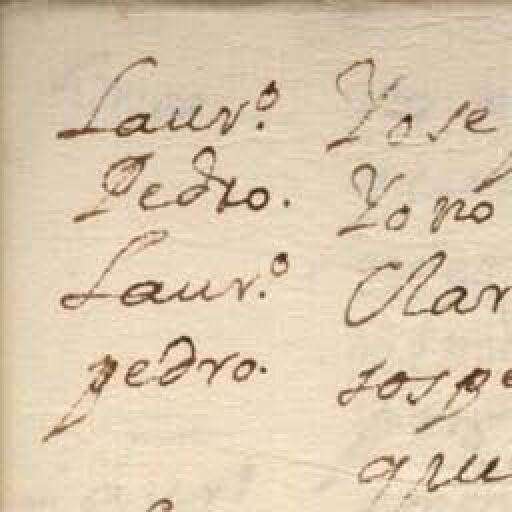 Laur.º Yo se
Pedro. Yo no
Laur.º Clar
pedro. sospe
que